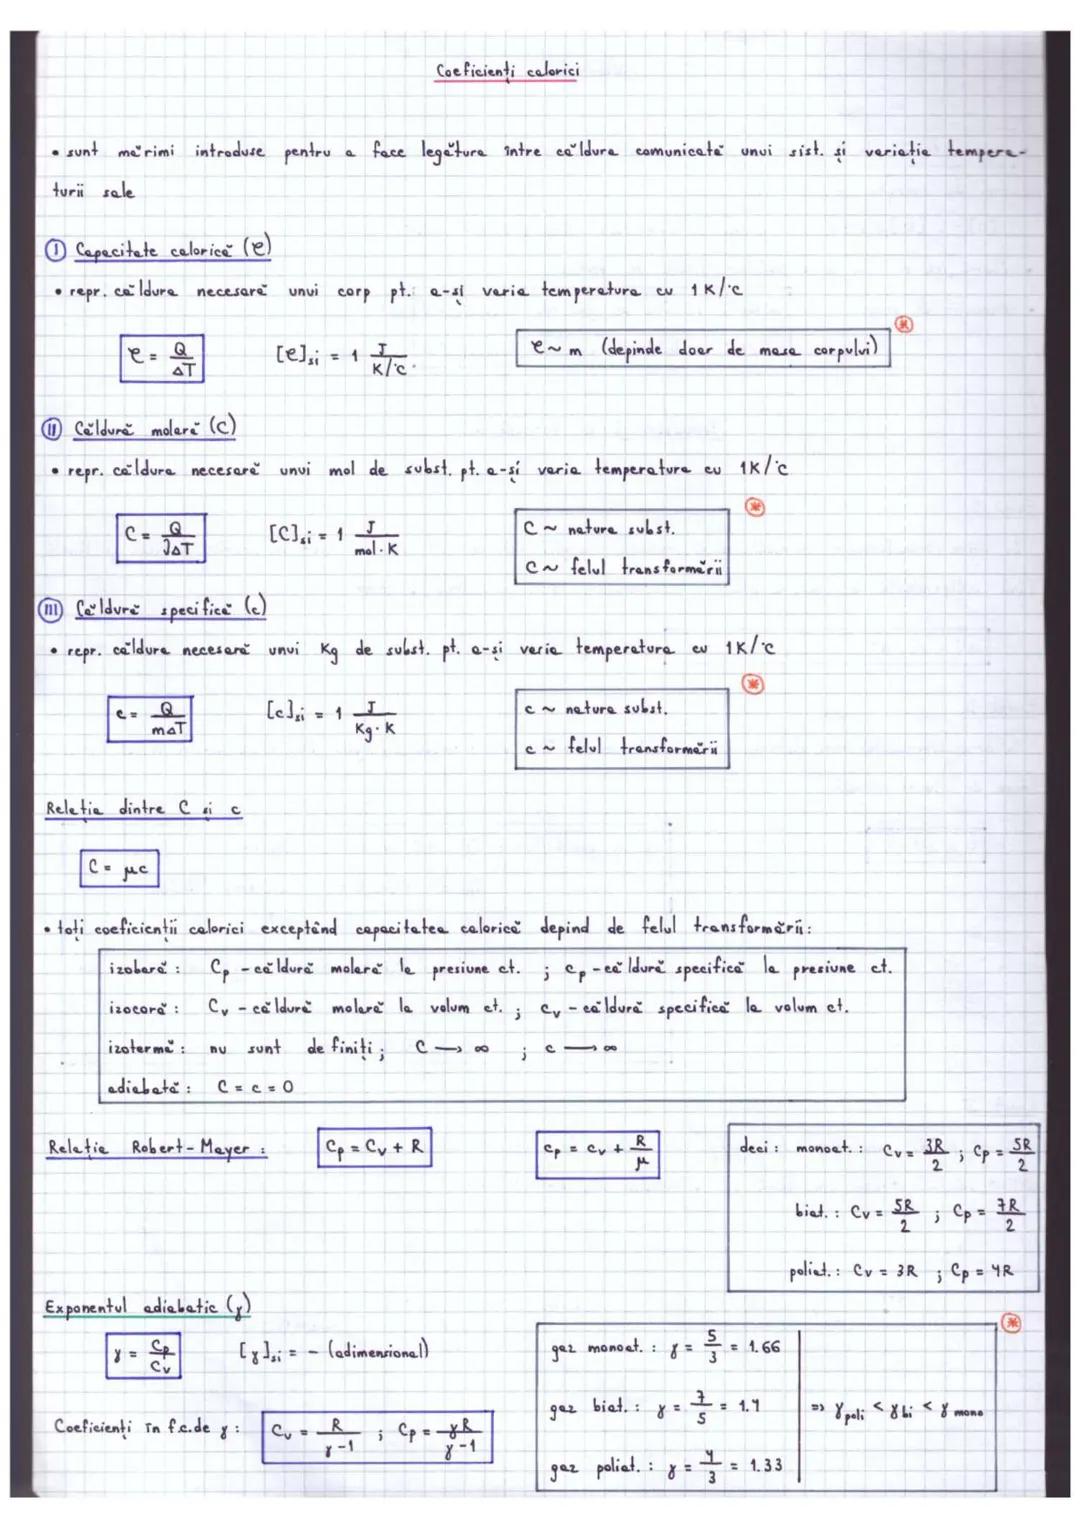 Coeficienți calorici
• sunt mărimi introduse pentru a face legătura între căldura comunicată unui sist. și variația tempera-
turii sale
I Capacitate calorică (C)
• repr. căldura necesară unui corp pt. a-și varia temperatura cu 1K/°C
C = Q/ΔT [C]si = 1 J/K/°C C ~ m (depinde doar de masa corpului) *
II Căldură molară (C)
• repr. căldura necesară unui mol de subst. pt. a-și varia temperatura cu 1K/°C
C = Q/νΔT [C]si = 1 J/mol·K C ~ natura subst. *
C ~ felul transformării
III Căldură specifică (c)
• repr. căldura necesară unui Kg de subst. pt. a-și varia temperatura cu 1K/°C
c = Q/mΔT [c]si = 1 J/Kg·K c ~ natura subst. *
c ~ felul transformării
Relația dintre C și c
C = μc
• toți coeficienții calorici exceptând capacitatea calorică depind de felul transformării:
izobară : Cp - căldură molară la presiune ct. ; cp - căldură specifică la presiune ct.
izocoră : Cv - căldură molară la volum ct. ; cv - căldură specifică la volum ct.
izotermă : nu sunt definiți ; C → ∞ ; c → ∞
adiabată : C = c = 0
Relația Robert-Mayer : Cp = Cv + R cp = cv + R/μ deci : monoat. : Cv = 3R/2 ; Cp = 5R/2
biat. : Cv = 5R/2 ; Cp = 7R/2
poliat. : Cv = 3R ; Cp = 4R
Exponentul adiabatic (γ)
γ = Cp/Cv [γ]si = - (adimensional) gaz monoat. : γ = 5/3 = 1.66 *
gaz biat. : γ = 7/5 = 1.4 => γpoli < γbi < γmono
Coeficienți în f.c.de γ : Cv = R/γ-1 ; Cp = γR/γ-1
gaz poliat. : γ = 4/3 = 1.33